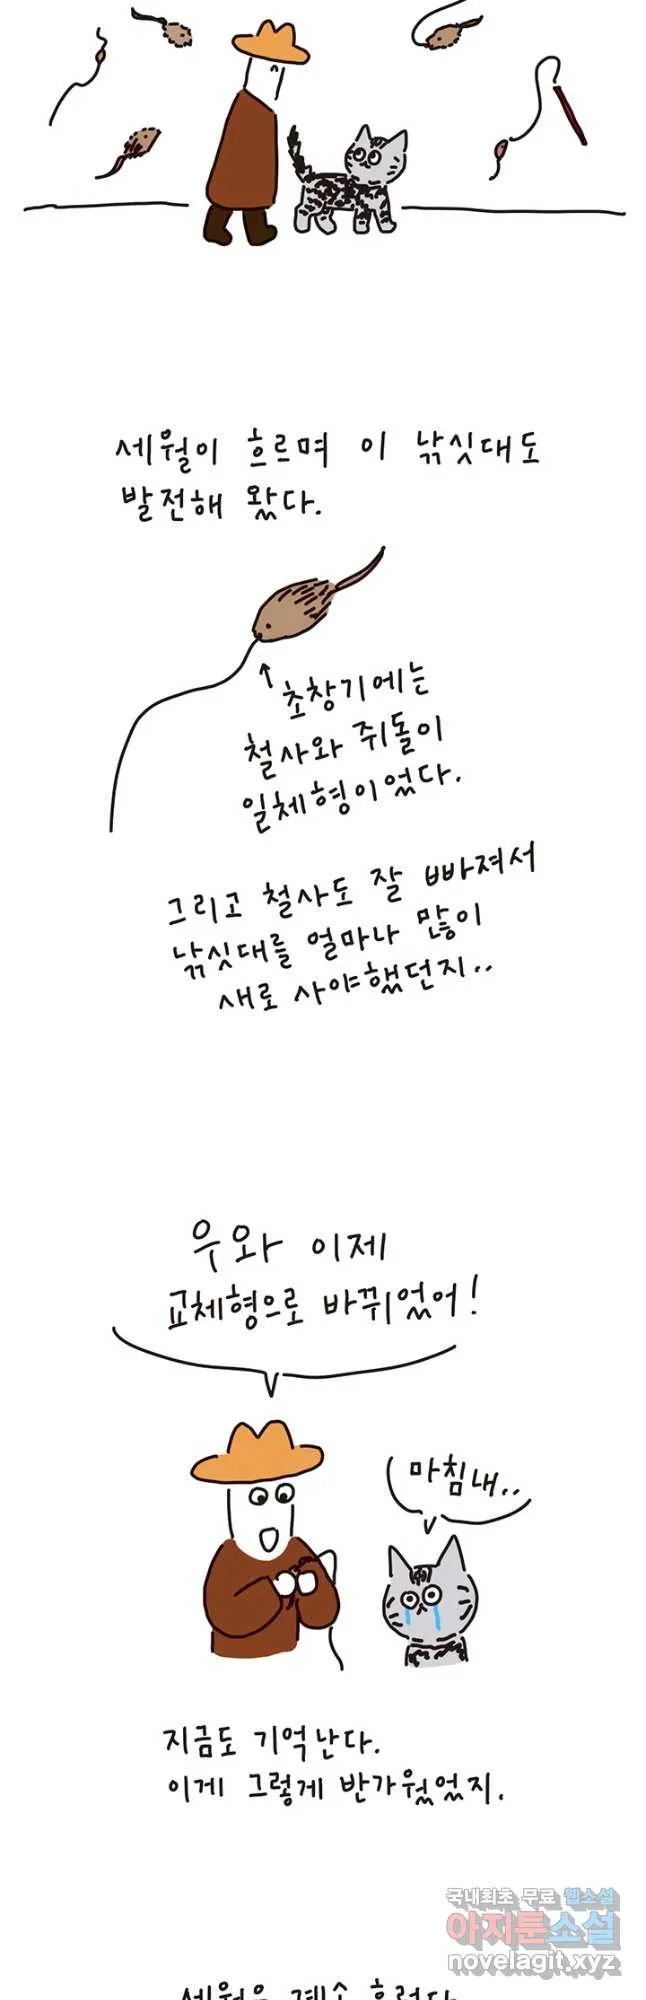 세월이 흐르며 이 낚싯대도
발전해 왔다.
↑
초창기에는
철사와 쥐돌이
일체형이었다.
그리고 철사도 잘 빠져서
낚싯대를 얼마나 많이
새로 사야했던지..
우와 이제
교체형으로 바뀌었어!
마침내..
지금도 기억난다.
이게 그렇게 반가웠었지.
국내최초 무료 웹소설
아지툰소설
novelagit.xyz
세월은 계속 흘렀다